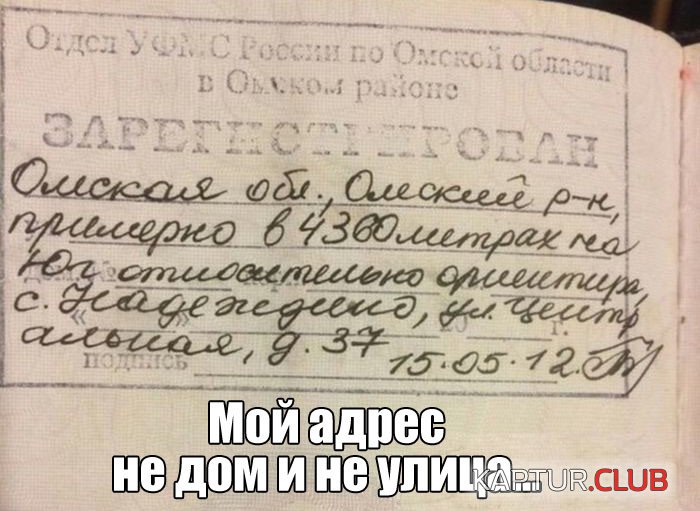 Отдел УФМС России по Омской области
в Омском районе
ЗАРЕГИСТРИРОВАН
Омская обл., Омский р-н,
примерно в 4360 метрах на
Юг относительно ориентира,
с. Надеждино, ул. Центр
альная, д. 37
20 г.
подпись
15.05.12.
Мой адрес
не дом и не улица...
KAPTUR.CLUB